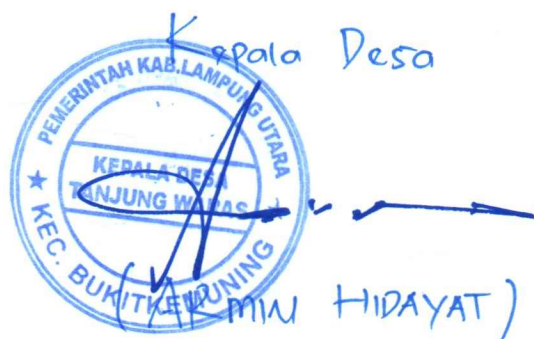 Kepala Desa
PEMERINTAH KAB.LAMPUNG UTARA
KEPALA DESA
TANJUNG WARAS
KEC. BUKITKEMUNING
(ARMIN HIDAYAT)